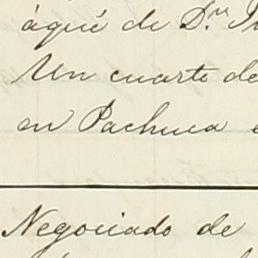 áqué de D.ⁿ
Un cuarto de
en Pachuca
Negociado de